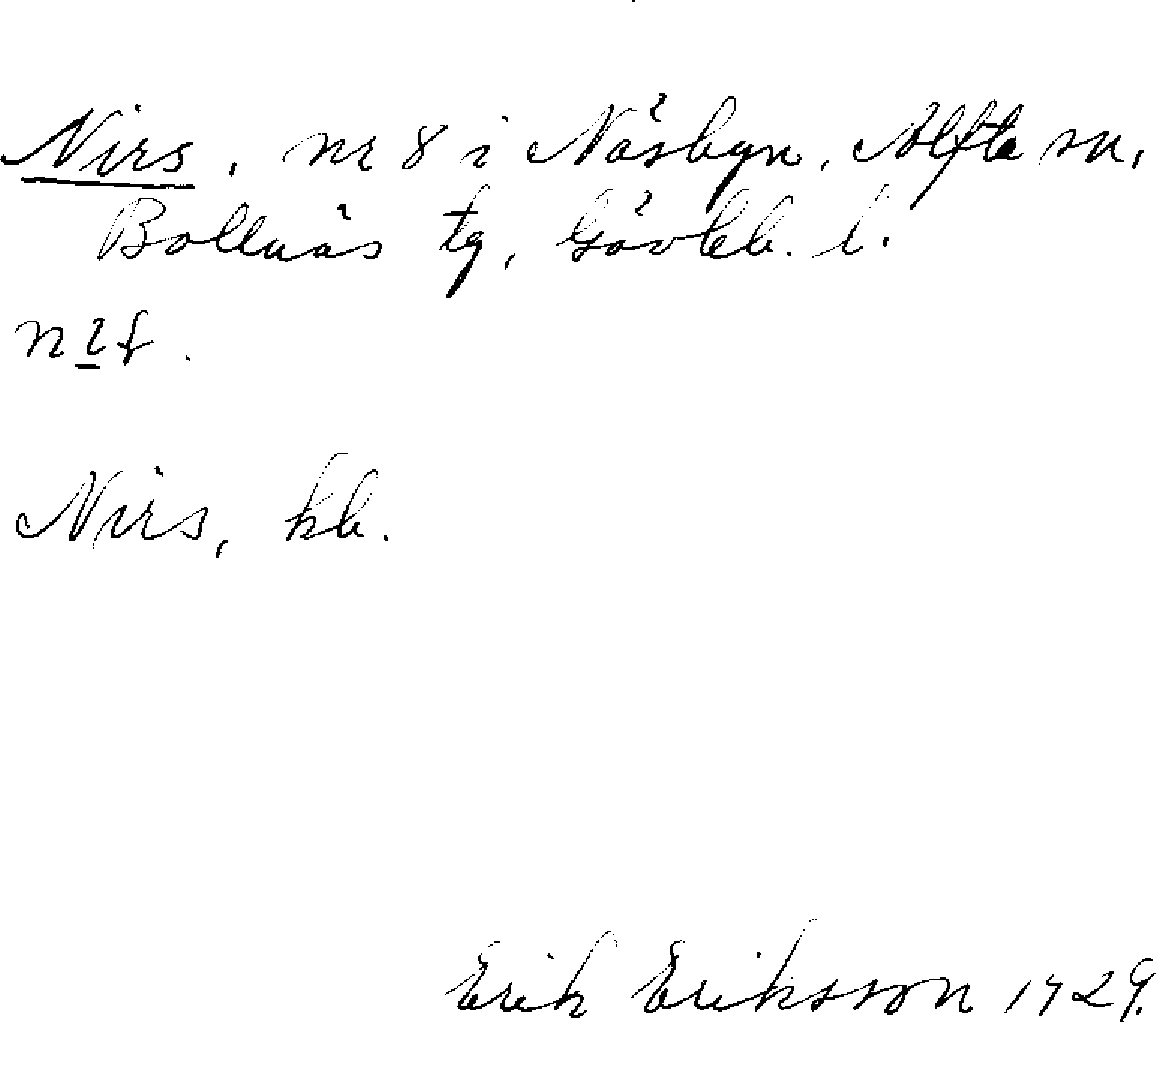 Nirs, nr 8 i Näsbyn, Alfta sn,
Bollnäs tg, Gävleb. l.
Nirs, kb.
Erik Eriksson 1929.